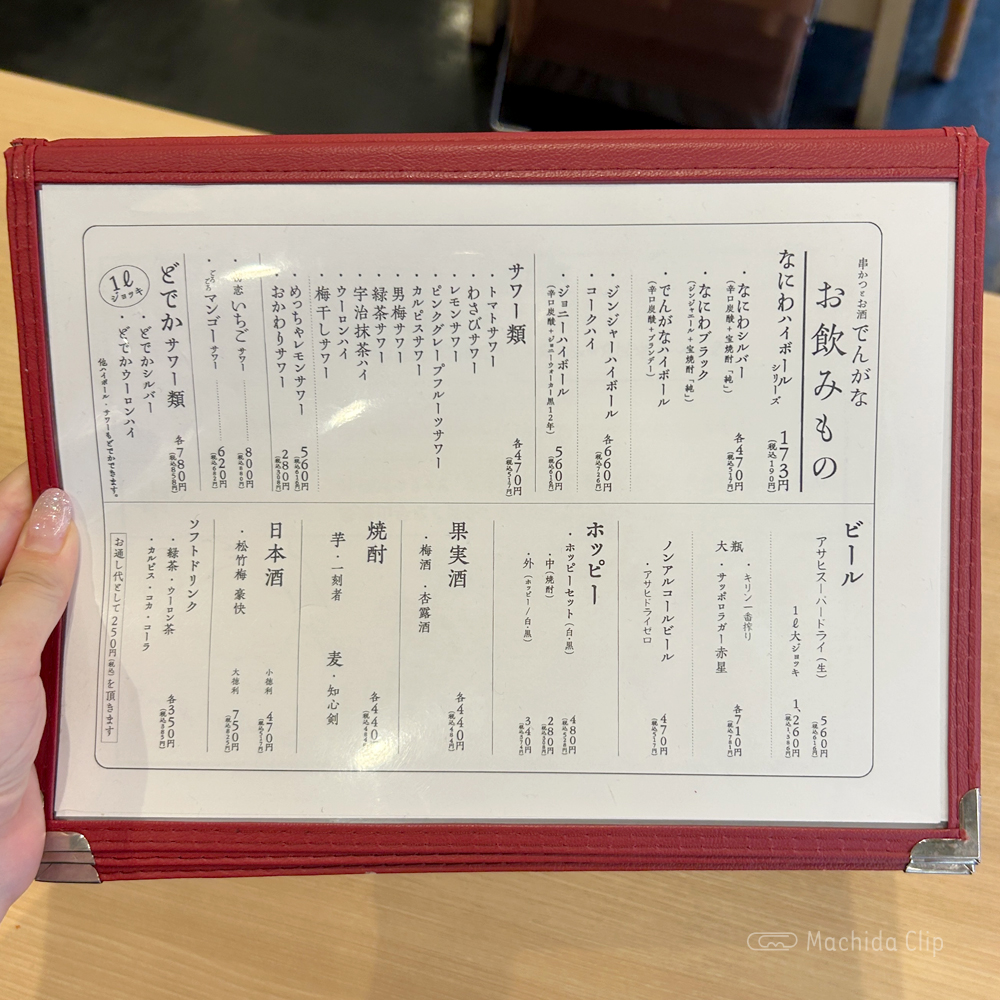 串かつとお酒 でんがな
お飲みもの
なにわハイボール シリーズ 173円
(税込190円)
・なにわシルバー 各470円
(辛口炭酸+宝焼酎「純」) (税込517円)
・なにわブラック
(ジンジャエール+宝焼酎「純」)
・でんがなハイボール
(辛口炭酸+ブランデー)
・ジンジャーハイボール 各660円
(税込726円)
・コークハイ
・ジョニーハイボール 560円
(辛口炭酸+ジョニーウォーカー黒12年) (税込616円)
サワー類 各470円
(税込517円)
・トマトサワー
・わさびサワー
・レモンサワー
・ピンクグレープフルーツサワー
・カルピスサワー
・男梅サワー
・緑茶サワー
・宇治抹茶ハイ
・ウーロンハイ
・梅干しサワー
・めっちゃレモンサワー 560円
(税込616円)
・おかわりサワー 280円
(税込308円)
いちごサワー 800円
(税込880円)
・とろとろマンゴーサワー 620円
(税込682円)
どでかサワー類 各780円
(税込858円)
1ℓジョッキ
・どでかシルバー
・どでかウーロンハイ
他ハイボール・サワーもどでかできます。
ビール
アサヒスーパードライ(生) 560円
(税込616円)
1ℓ大ジョッキ 1,260円
(税込1,386円)
大瓶 ・キリン一番搾り 各710円
(税込781円)
・サッポロラガー赤星
ノンアルコールビール 470円
(税込517円)
・アサヒドライゼロ
ホッピー
・ホッピーセット(白・黒) 480円
(税込528円)
・中(焼酎) 280円
(税込308円)
・外(ホッピー/白・黒) 340円
(税込374円)
果実酒 各440円
(税込484円)
・梅酒 ・杏露酒
焼酎 各440円
(税込484円)
芋・一刻者 麦・知心剣
日本酒 小徳利 470円
(税込517円)
・松竹梅 豪快 大徳利 750円
(税込825円)
ソフトドリンク 各350円
(税込385円)
・緑茶・ウーロン茶
・カルピス・コカ・コーラ
お通し代として250円(税込)を頂きます
Machida Clip